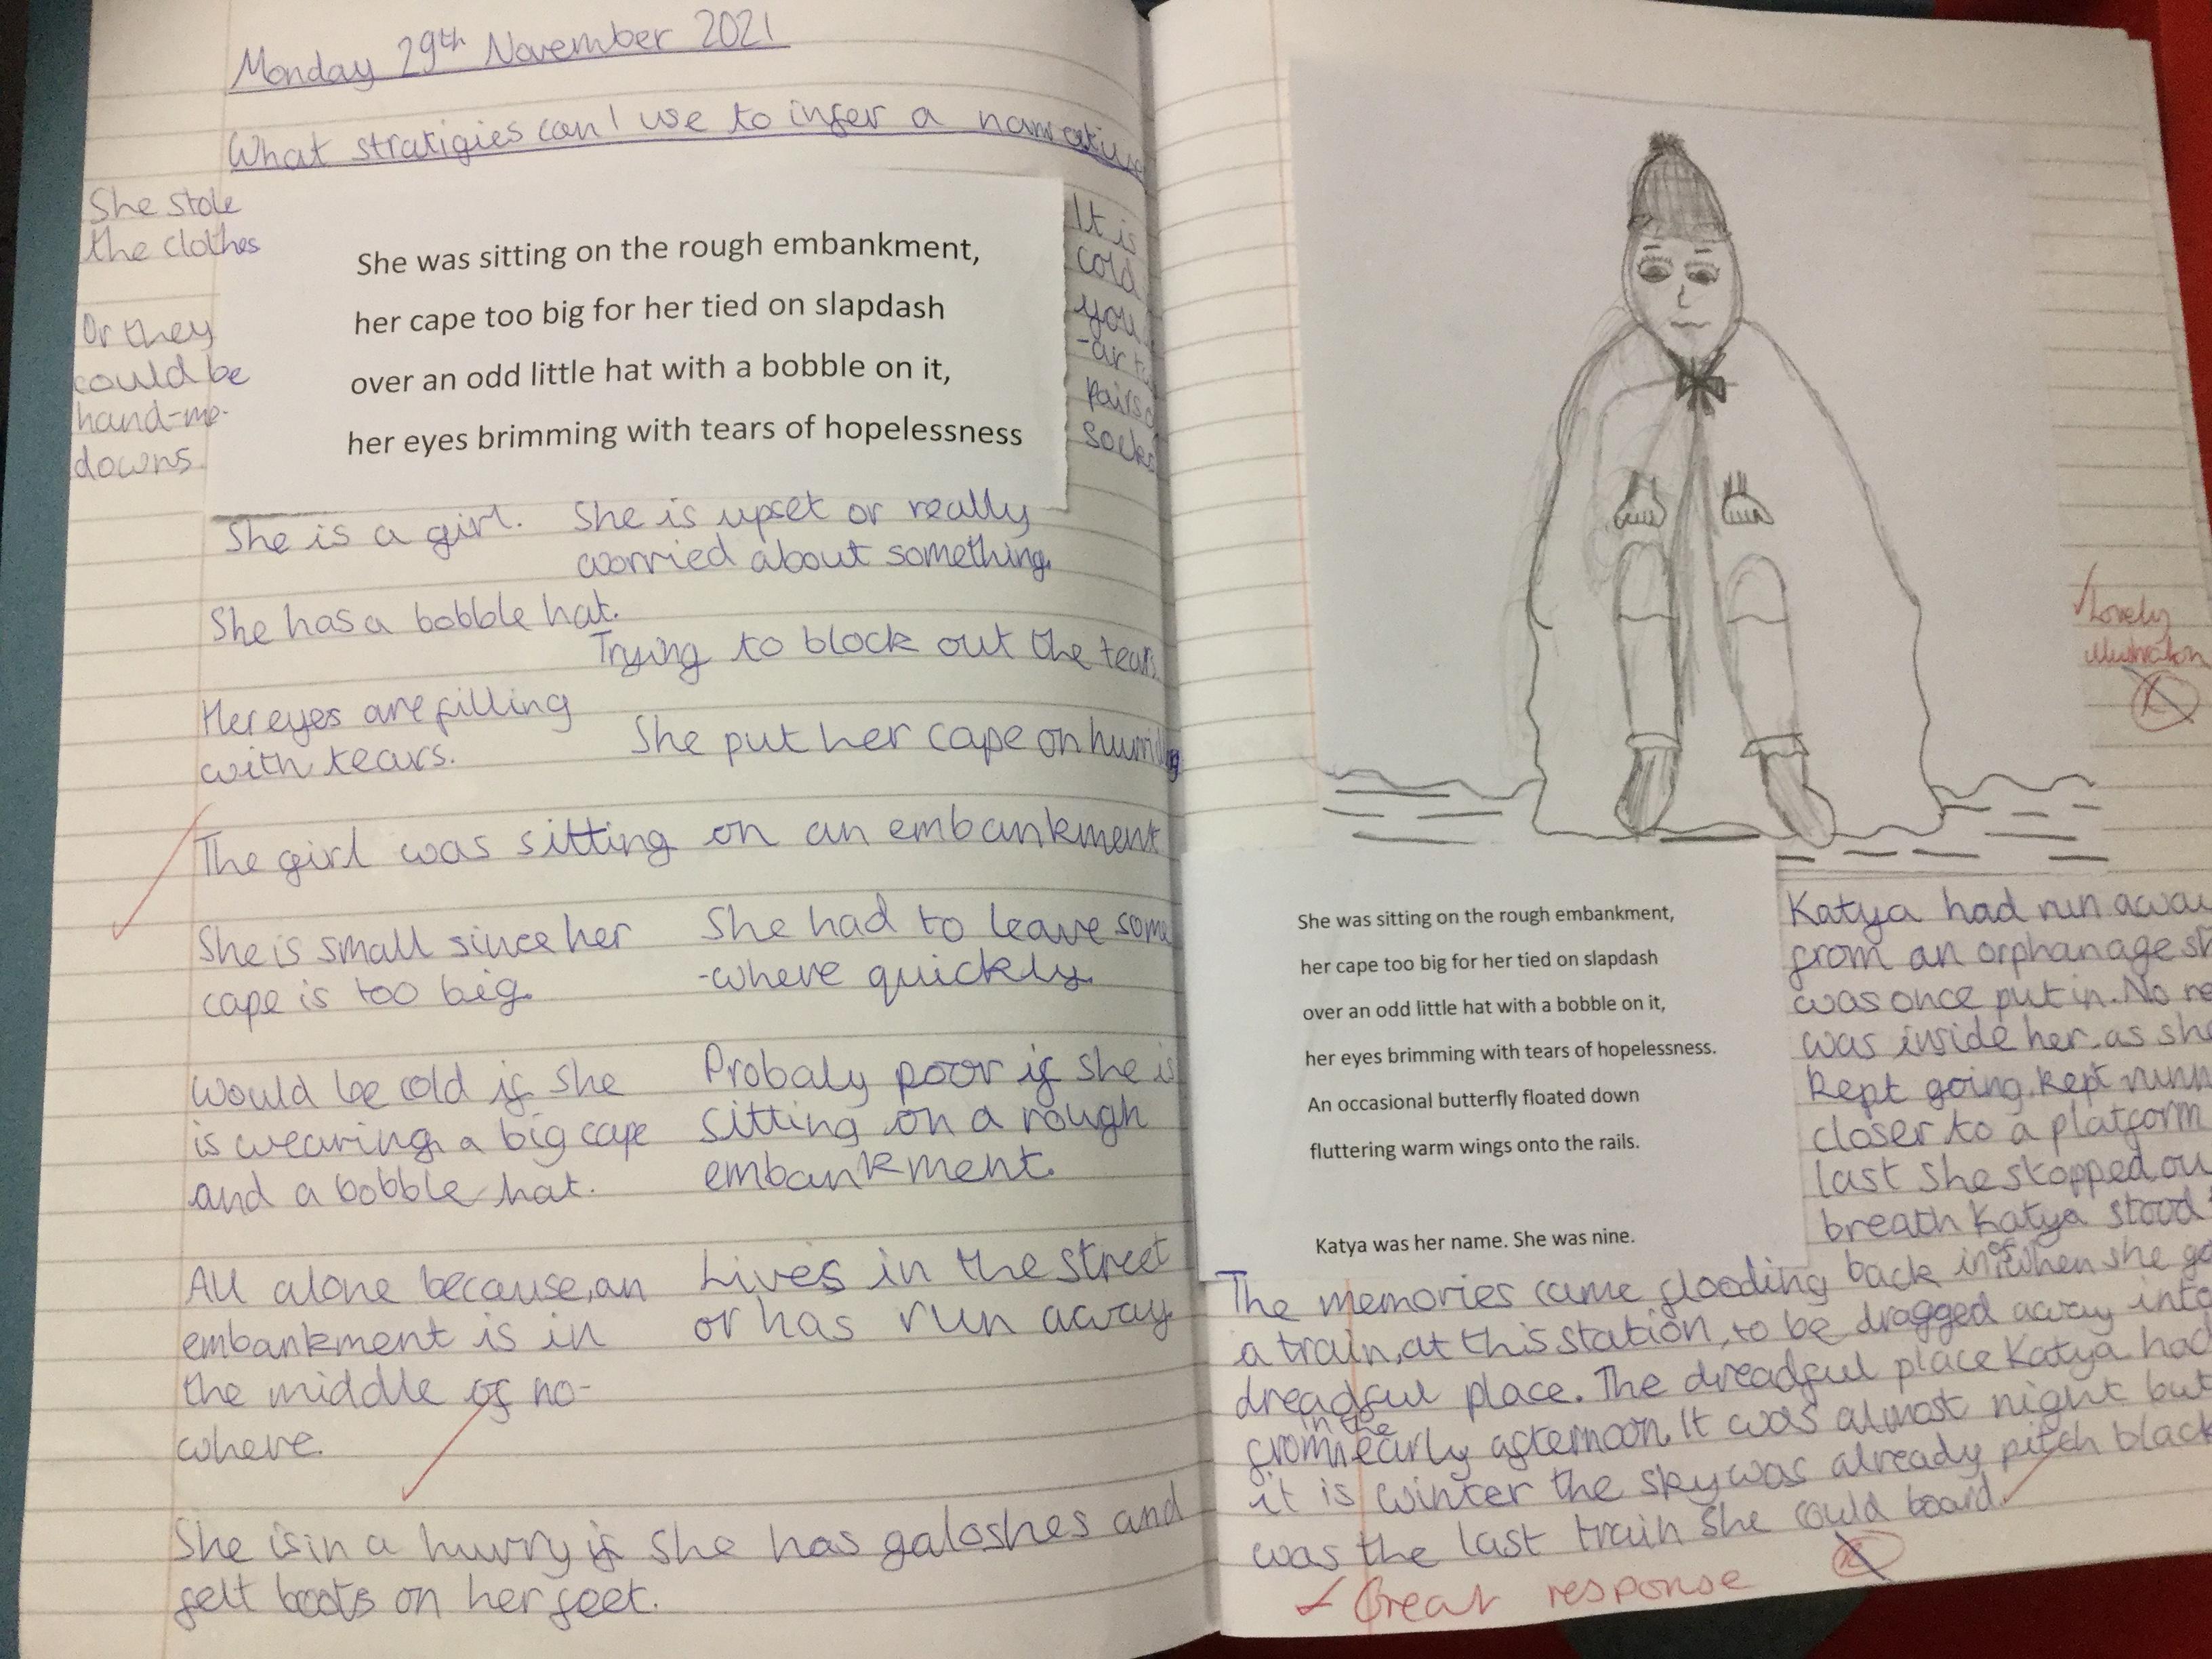 Monday 29th November 2021
What stratigies can I use to infer a narrative
She stole
the clothes
Or they
could be
hand-me-
downs.
She was sitting on the rough embankment,
her cape too big for her tied on slapdash
over an odd little hat with a bobble on it,
her eyes brimming with tears of hopelessness
It is
cold
you
pairs
socks
She is a girl.
She is upset or really
worried about something.
She has a bobble hat.
Trying to block out the tears.
Her eyes are filling
with tears.
She put her cape on
The girl was sitting on an embankment
She is small since her
cape is too big.
She had to leave some
-where quickly.
Would be cold if she
is wearing a big cape
and a bobble hat.
Probaly poor if she is
sitting on a rough
embankment.
All alone because, an
embankment is in
the middle of no-
where.
Lives in the street
or has run away.
She is in a hurry if she has galoshes and
felt boots on her feet.
Lovely
illustration
She was sitting on the rough embankment,
her cape too big for her tied on slapdash
over an odd little hat with a bobble on it,
her eyes brimming with tears of hopelessness.
An occasional butterfly floated down
fluttering warm wings onto the rails.
Katya was her name. She was nine.
Katya had run away
from an orphanage
was once put in. No
was inside her, as she
kept going, kept
closer to a platform
last she stopped,
breath Katya stood
The memories came flooding back in of when she
a train, at this station, to be dragged away into
dreadful place. The dreadful place Katya had
from in the early afternoon. It was almost night but
it is winter the sky was already pitch black
was the last train she could board.
Great response